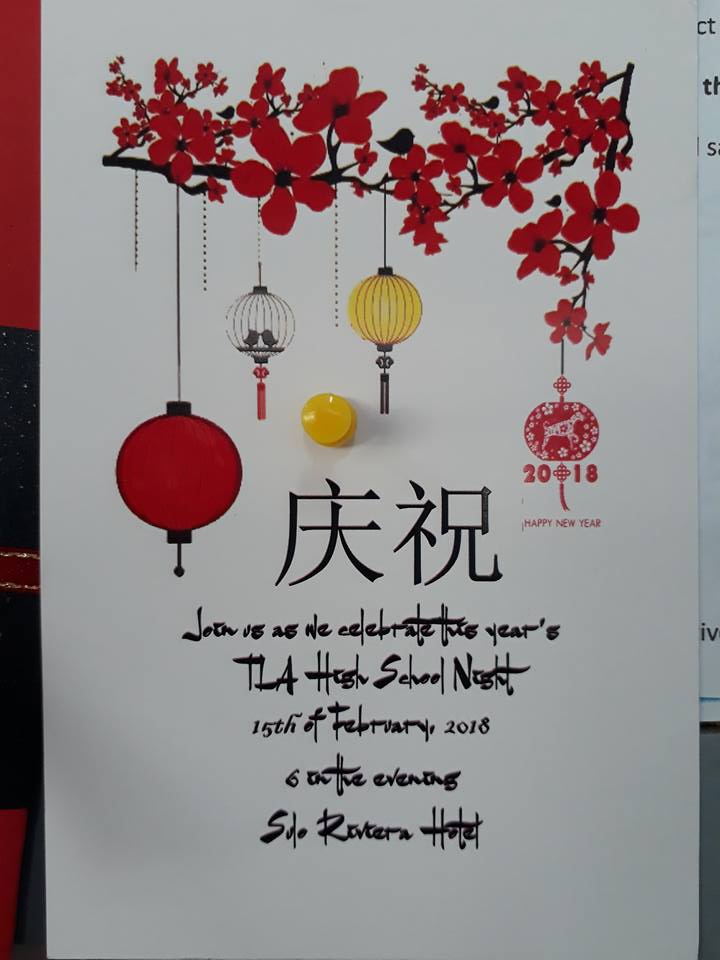 2018
HAPPY NEW YEAR
庆祝
Join us as we celebrate this year's
TLA High School Night
15th of February, 2018
6 in the evening
Sulo Riviera Hotel
ct
th
sa
ive